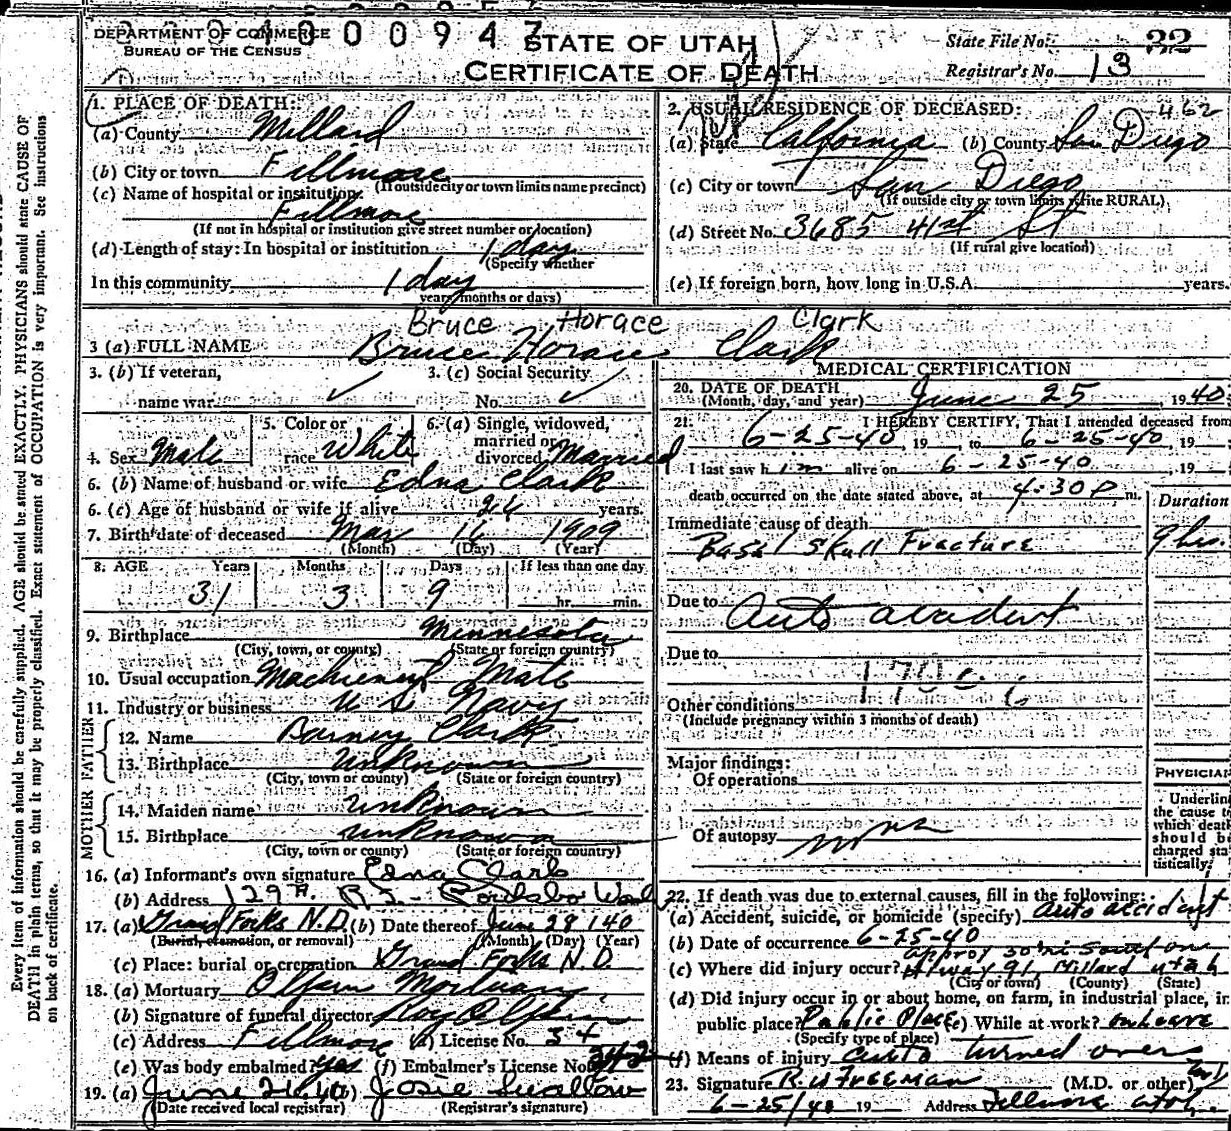 DEPARTMENT OF COMMERCE
BUREAU OF THE CENSUS
STATE OF UTAH
CERTIFICATE OF DEATH
State File No. 22
Registrar's No. 13
Every item of information should be carefully supplied. AGE should be stated EXACTLY. PHYSICIANS should state CAUSE OF
DEATH in plain terms, so that it may be properly classified. Exact statement of OCCUPATION is very important. See instructions
on back of certificate.
1. PLACE OF DEATH:
(a) County Millard
(b) City or town Fillmore
(If outside city or town limits name precinct)
(c) Name of hospital or institution:
Fillmore
(If not in hospital or institution give street number or location)
(d) Length of stay: In hospital or institution 1 day
(Specify whether
In this community 1 day
years, months or days)
2. USUAL RESIDENCE OF DECEASED: 462
(a) State California (b) County San Diego
(c) City or town San Diego
(If outside city or town limits write RURAL)
(d) Street No. 3685 41st St
(If rural give location)
(e) If foreign born, how long in U.S.A. years.
Bruce Horace Clark
3 (a) FULL NAME Bruce Horace Clark
3. (b) If veteran, 3. (c) Social Security
name war No.
4. Sex Male 5. Color or race White 6. (a) Single, widowed, married or divorced Married
6. (b) Name of husband or wife Edna Clark
6. (c) Age of husband or wife if alive 26 years.
7. Birth date of deceased Mar 16 1909
(Month) (Day) (Year)
8. AGE Years Months Days If less than one day
31 3 9 hr. min.
9. Birthplace Minnesota
(City, town, or county) (State or foreign country)
10. Usual occupation Machienest Mate
11. Industry or business U S Navy
FATHER
12. Name Barney Clark
13. Birthplace Unknown
(City, town or county) (State or foreign country)
MOTHER
14. Maiden name unknown
15. Birthplace unknown
(City, town or county) (State or foreign country)
16. (a) Informant's own signature Edna Clark
(b) Address
17. (a) Grand Forks N.D. (b) Date thereof June 28 1940
(Burial, cremation, or removal) (Month) (Day) (Year)
(c) Place: burial or cremation Grand Forks N.D.
18. (a) Mortuary Olpin Mortuary
(b) Signature of funeral director Roy Olpin
(c) Address Fillmore (d) License No. 34
(e) Was body embalmed? yes (f) Embalmer's License No. 342
19. (a) June 26, 40 (b) Josie Swallow
(Date received local registrar) (Registrar's signature)
MEDICAL CERTIFICATION
20. DATE OF DEATH June 25, 1940
(Month, day, and year)
21. I HEREBY CERTIFY, That I attended deceased from
6-25-40, 19 to 6-25-40, 19
I last saw him alive on 6-25-40, 19
death occurred on the date stated above, at 4:30 P m.
Duration
Immediate cause of death
Basal Skull Fracture 9 hrs.
Due to Auto accident
Due to
Other conditions
(Include pregnancy within 3 months of death)
Major findings:
Of operations
Of autopsy
PHYSICIAN
Underline
the cause to
which death
should be
charged sta
tistically.
22. If death was due to external causes, fill in the following:
(a) Accident, suicide, or homicide (specify) auto accident
(b) Date of occurrence 6-25-40
approx 30 mi South on
(c) Where did injury occur? Hiway 91, Millard utah
(City or town) (County) (State)
(d) Did injury occur in or about home, on farm, in industrial place, in
public place? Public Place (e) While at work? on leave
(Specify type of place)
(f) Means of injury auto turned over
23. Signature R. U Freeman (M.D. or other)
6-25/40 19 Address Fillmore Utah.